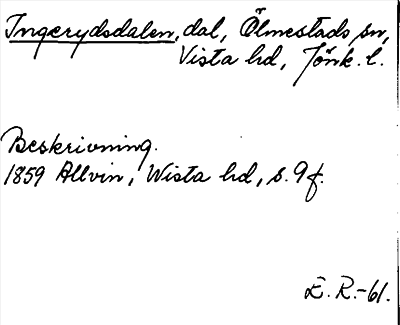 Ingerydsdalen, dal, Ölmestads sn,
Vista hd, Jönk. l.
Beskrivning.
1859 Allvin, Wista hd, s. 9 f.
E. R.-61.